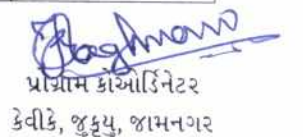 પ્રોગ્રામ કોઓર્ડિનેટર
કેવીકે, જુકૃયુ, જામનગર